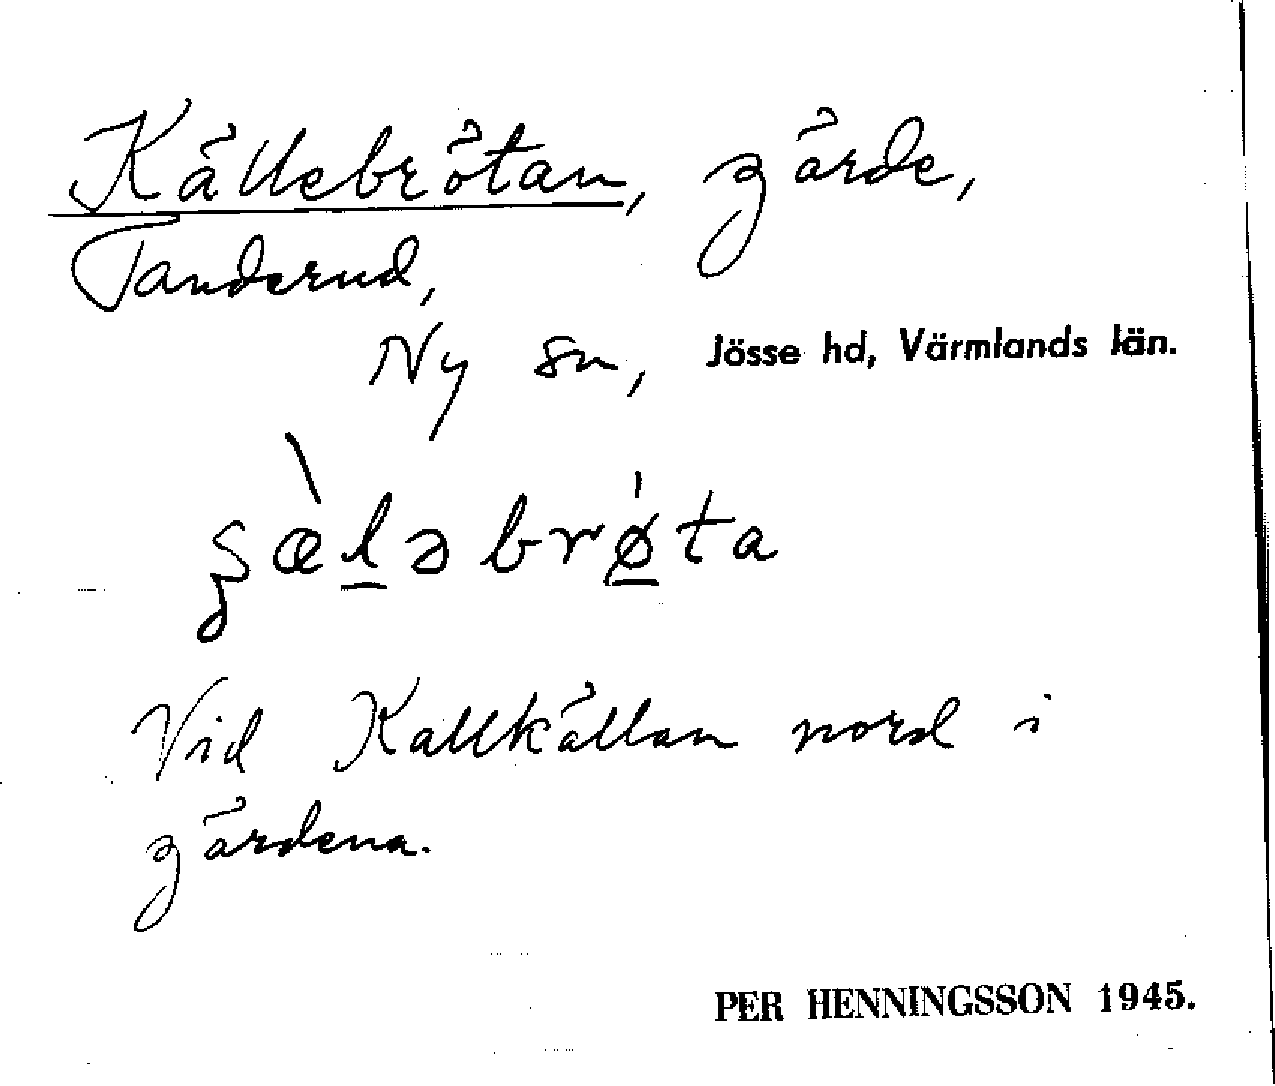 Källebrötan, gärde,
Tanderud,
Ny sn, Jösse hd, Värmlands län.
ʂæ̀l̲əbrǿ̲ta
Vid Kallkällan nord i
gärdena.
PER HENNINGSSON 1945.